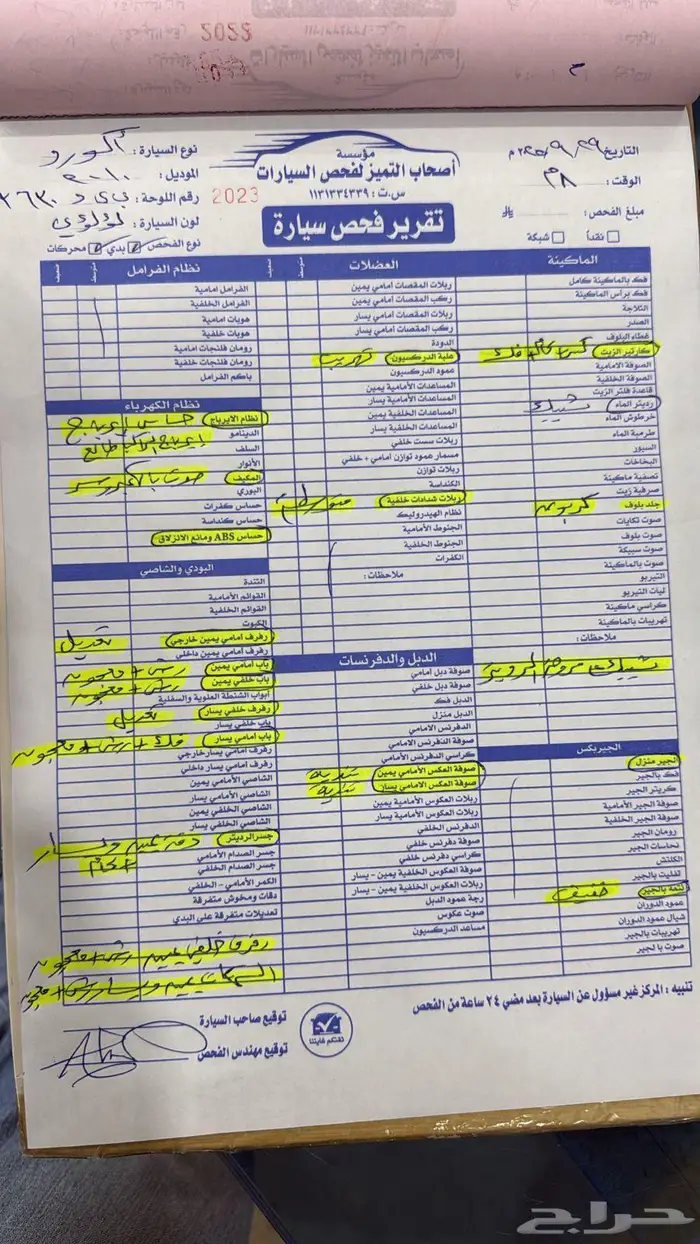 مؤسسة
أصحاب التميز لفحص السيارات
س.ت : ١١٣١٣٣٤٣٣٩
تقرير فحص سيارة
2023
التاريخ ٢٩ / ٩ / ٢٠٢٥ م
الوقت : ٨م
مبلغ الفحص :
نقداً
شبكة
نوع السيارة : أكورد
الموديل : ٢٠١٠
رقم اللوحة :
لون السيارة : لؤلؤي
نوع الفحص بدي محركات
الماكينة
فك بالماكينة كامل
فك برأس الماكينة
الثلاجة
الصدر
غطاء البلوف
كارتير الزيت
الصوفة الامامية
الصوفة الخلفية
قاعدة فلتر الزيت
رديتر الماء شييك
خرطوش الماء
طرمبة الماء
السيور
البخاخات
تصفية ماكينة
صرفية زيت
جلد بلوف كربون
صوت تكايات
صوت بلوف
صوت سبيكة
صوت بالماكينة
التيربو
ليات التيربو
كراسي ماكينة
تهريبات بالماكينة
ملاحظات :
الجيربكس
الجير منزل
فك بالجير
كريتر الجير
صوفة الجير الأمامية
صوفة الجير الخلفية
رومان الجير
نحاسات الجير
الكلتش
تفليت بالجير
نتعة بالجير خفيف
عمود الدوران
شيال عمود الدوران
تهريبات بالجير
صوت با لجير
العضلات
متوسط
ضعيف
ربلات المقصات امامي يمين
ركب المقصات امامي يمين
ربلات المقصات امامي يسار
ركب المقصات امامي يسار
الدودة
علبة الدركسيون تهريب
عمود الدركسيون
المساعدات الأمامية يمين
المساعدات الأمامية يسار
المساعدات الخلفية يمين
المساعدات الخلفية يسار
ربلات سست خلفي
مسمار عمود توازن امامي + خلفي
ربلات توازن
الكنداسة
ربلات شدادات خلفية متوسط
نظام الهيدروليك
الجنوط الأمامية
الجنوط الخلفية
الكفرات
ملاحظات :
الدبل والدفرنسات
صوفة دبل امامي
صوفة دبل خلفي
الدبل فك
الدبل منزل
الدفرنس الامامي
صوفة الدفرنس الامامي
كراسي الدفرنس الأمامي
صوفة العكس الأمامي يمين تندية
صوفة العكس الامامي يسار تندية
ربلات العكوس الأمامية يمين
ربلات العكوس الأمامية يسار
الدفرنس الخلفي
صوفة دفرنس خلفي
كراسي دفرنس خلفي
صوفة العكوس الخلفية يمين - يسار
ربلات العكوس الخلفية يمين - يسار
رجة عمود الدبل
صوت عكوس
مساعد الدركسيون
نظام الفرامل
متوسط
ضعيف
الفرامل امامية
الفرامل الخلفية
هوبات امامية
هوبات خلفية
رومان فلنجات امامية
رومان فلنجات خلفية
باكم الفرامل
نظام الكهرباء
نظام الايرباج حساس إيرباج
الدينامو
السلف
الأنوار
المكيف
البوري
حساس كفرات
حساس كنداسة
حساس ABS ومانع الانزلاق
البودي والشاصي
التندة
القوائم الأمامية
القوائم الخلفية
الكبوت
رفرف امامي يمين خارجي تعديل
رفرف امامي يمين داخلي
باب امامي يمين رش + معجون
باب خلفي يمين رش + معجون
أبواب الشنطة العلوية والسفلية
رفرف خلفي يسار تعديل
باب خلفي يسار
باب امامي يسار فك + رش + معجون
رفرف امامي يسار خارجي
رفرف امامي يسار داخلي
الشاصي الأمامي يمين
الشاصي الأمامي يسار
الشاصي الخلفي يمين
الشاصي الخلفي يسار
جسر الرديتر دقة يمين ويسار
جسر الصدام الأمامي
جسر الصدام الخلفي
الكمر الأمامي - الخلفي
دقات وخوش متفرقة
تعديلات متفرقة على البدي
رفرف خلفي يمين رش + معجون
تنبيه : المركز غير مسؤول عن السيارة بعد مضي ٢٤ ساعة من الفحص
ثقتكم غايتنا
توقيع صاحب السيارة
توقيع مهندس الفحص
حراج